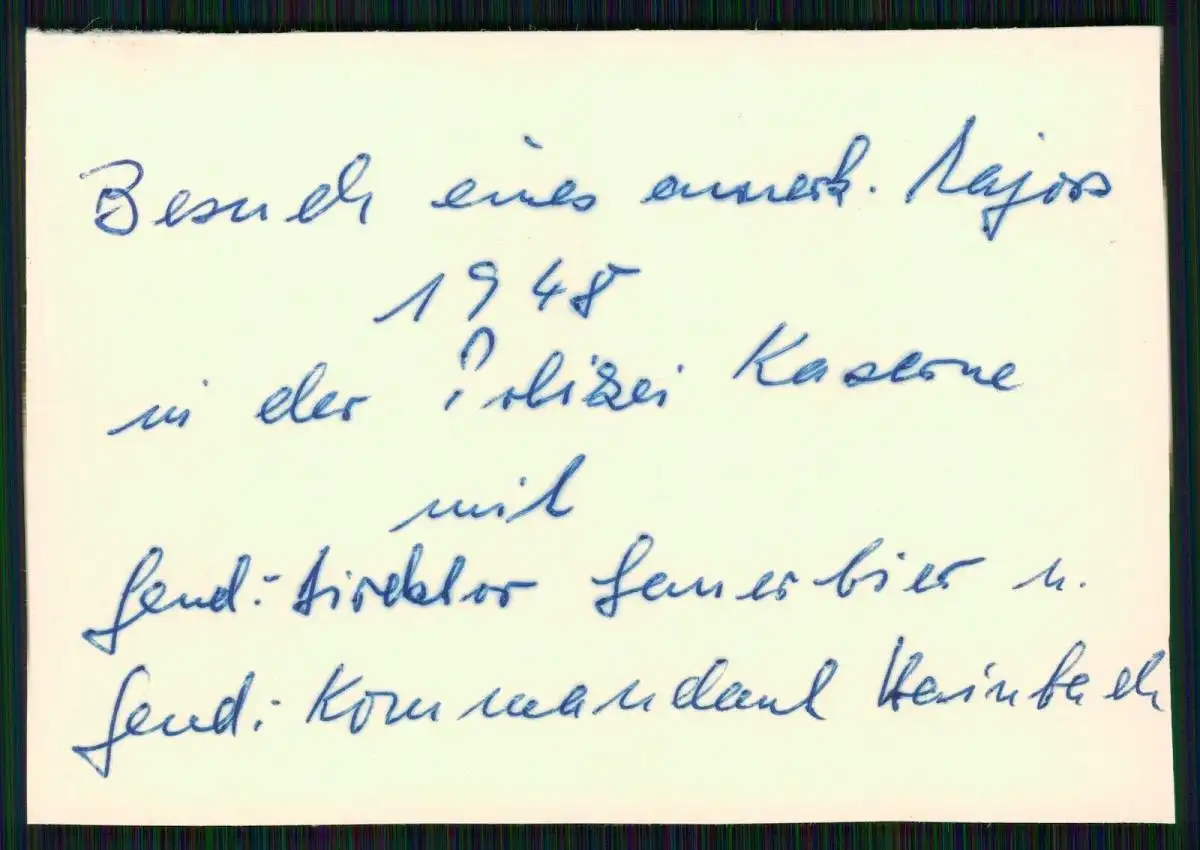 Besuch eines amerk. Majors
1948
in der Polizei Kaserne
mit
Gend: Direktor Sauerbier u.
Gend: Kommandant Hainbach